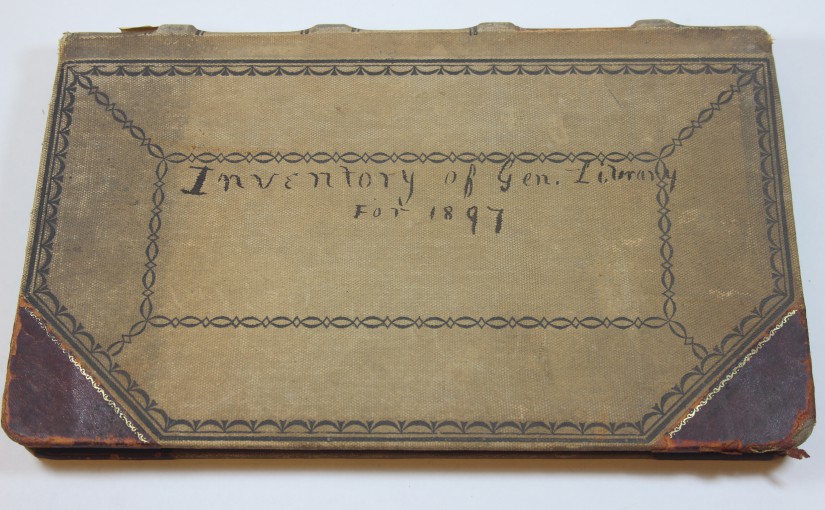 Inventory of Gen. Library
For 1897